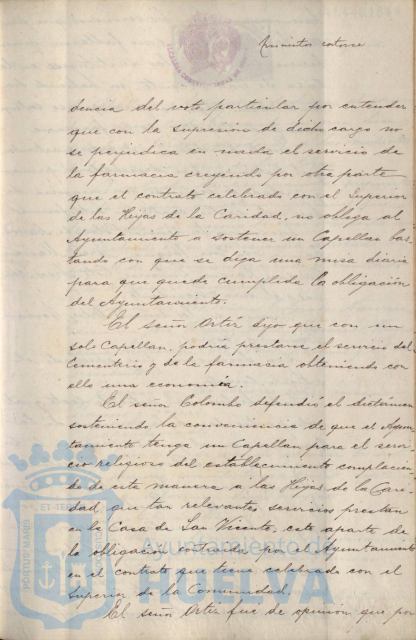 dencia del voto particular por entender
que con la supresión de dicho cargo no
se perjudica en nada el servicio de
la farmacia creyendo por otra parte
que el contrato celebrado con el Superior
de las Hijas de la Caridad, no obliga al
Ayuntamiento a sostener un Capellan bas
tando con que se diga una misa diaria
para que quede cumplida la obligación
del Ayuntamiento.
El señor Ortiz dijo que con un
solo Capellan, podria prestarse el servicio del
Cementerio y de la farmacia obteniendo con
ello una economia.
El señor Colombo defendió el dictámen
sosteniendo la conveniencia de que el Ayun
tamiento tenga un Capellan para el servi
cio religioso del establecimiento complacien
do de esta manera a las Hijas de la Cari
dad, que tan relevantes servicios prestan
en la Casa de San Vicente, esto aparte de
la obligación contraida por el Ayuntamiento
en el contrato que tiene celebrado con el
Superior de la Comunidad.
El señor Ortiz fue de opinión que por
Ayuntamiento de
HUELVA